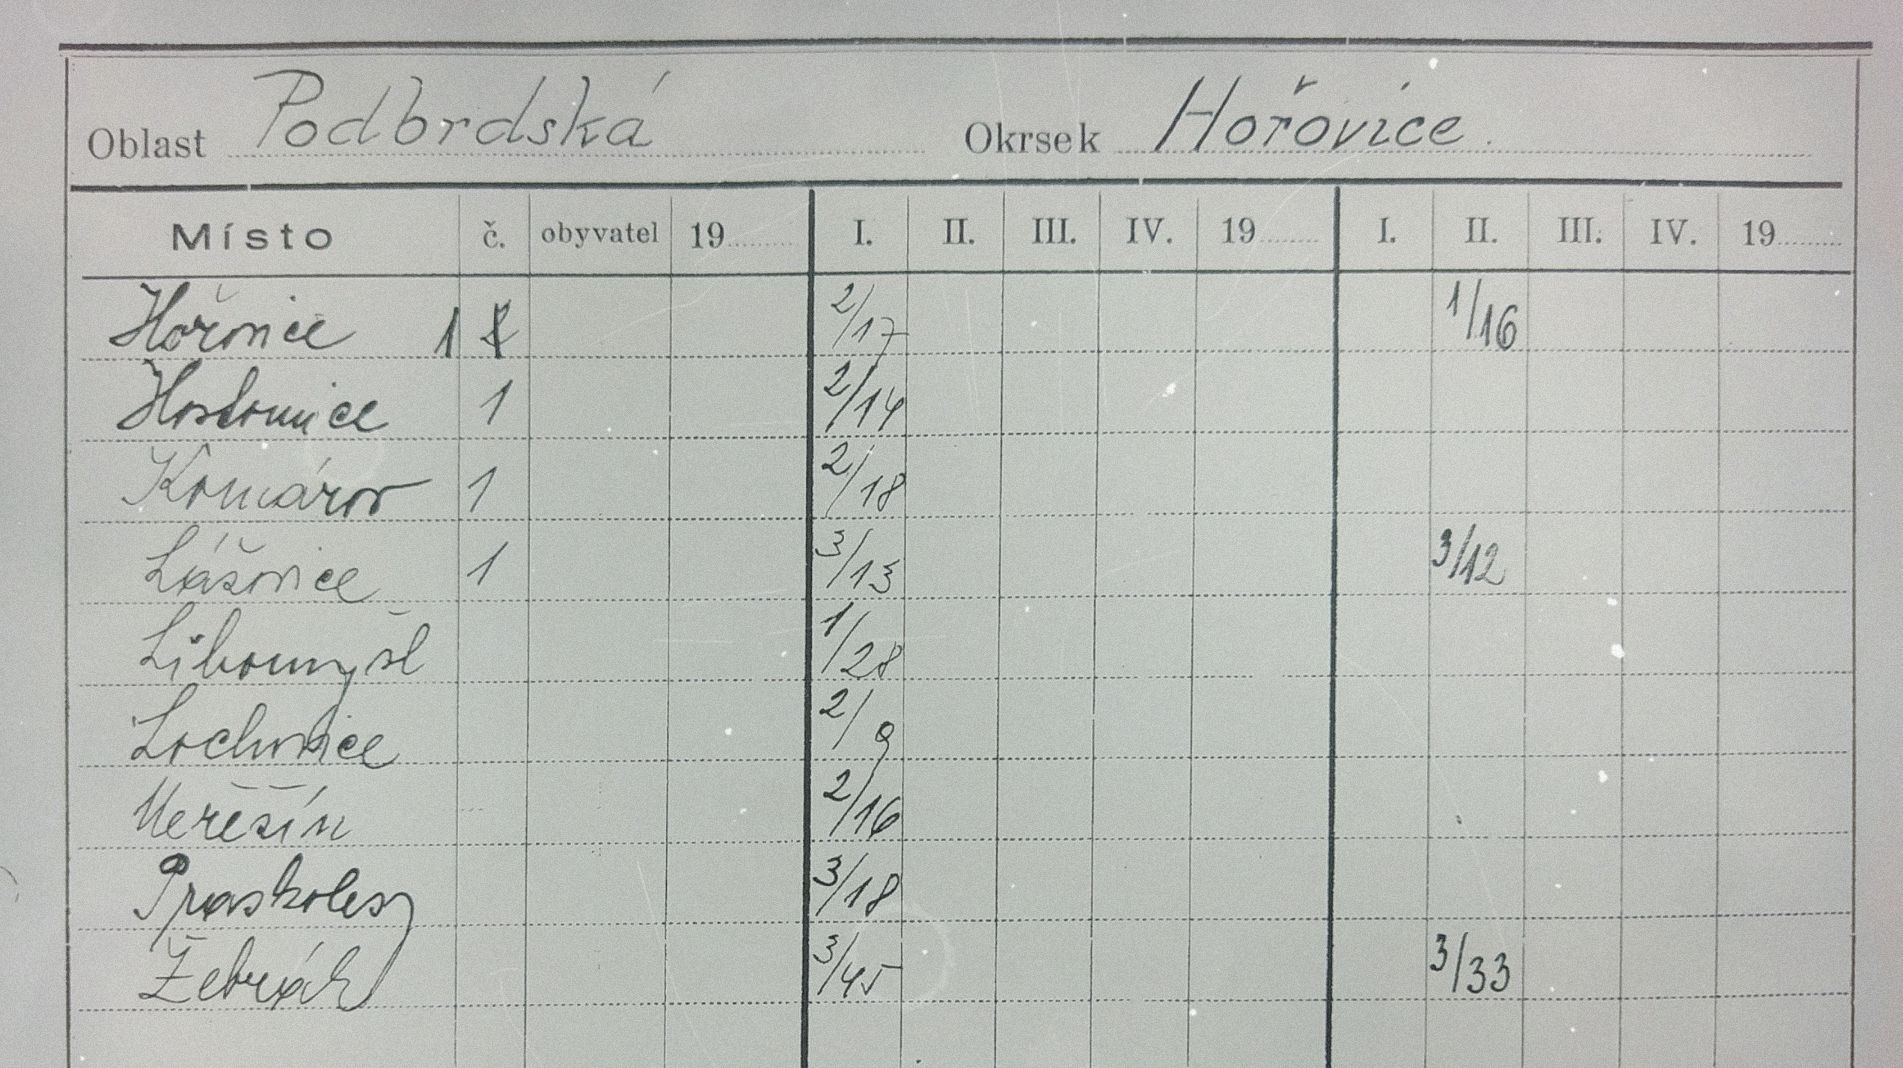 Oblast Podbrdská Okrsek Hořovice.
Místo č. obyvatel 19 I. II. III. IV. 19 I. II. III. IV. 19
Hořovice 1 2/17 1/16
Hostomice 1 2/14
Komárov 1 2/18
Lážovice 1 3/13 3/12
Libomyšl 1/28
Lochovice 2/9
Neřežín 2/16
Praskolesy 3/18
Žebrák 3/45 3/33